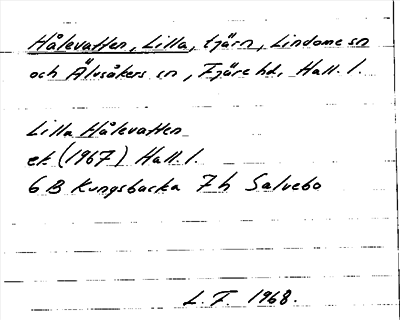 Hålevatten, Lilla, tjärn, Lindome sn
och Älvsåkers sn, Fjäre hd, Hall. l.
Lilla Hålevatten
ek (1967) Hall. l.
6 B Kungsbacka 7 h Salvebo
L. F. 1968.